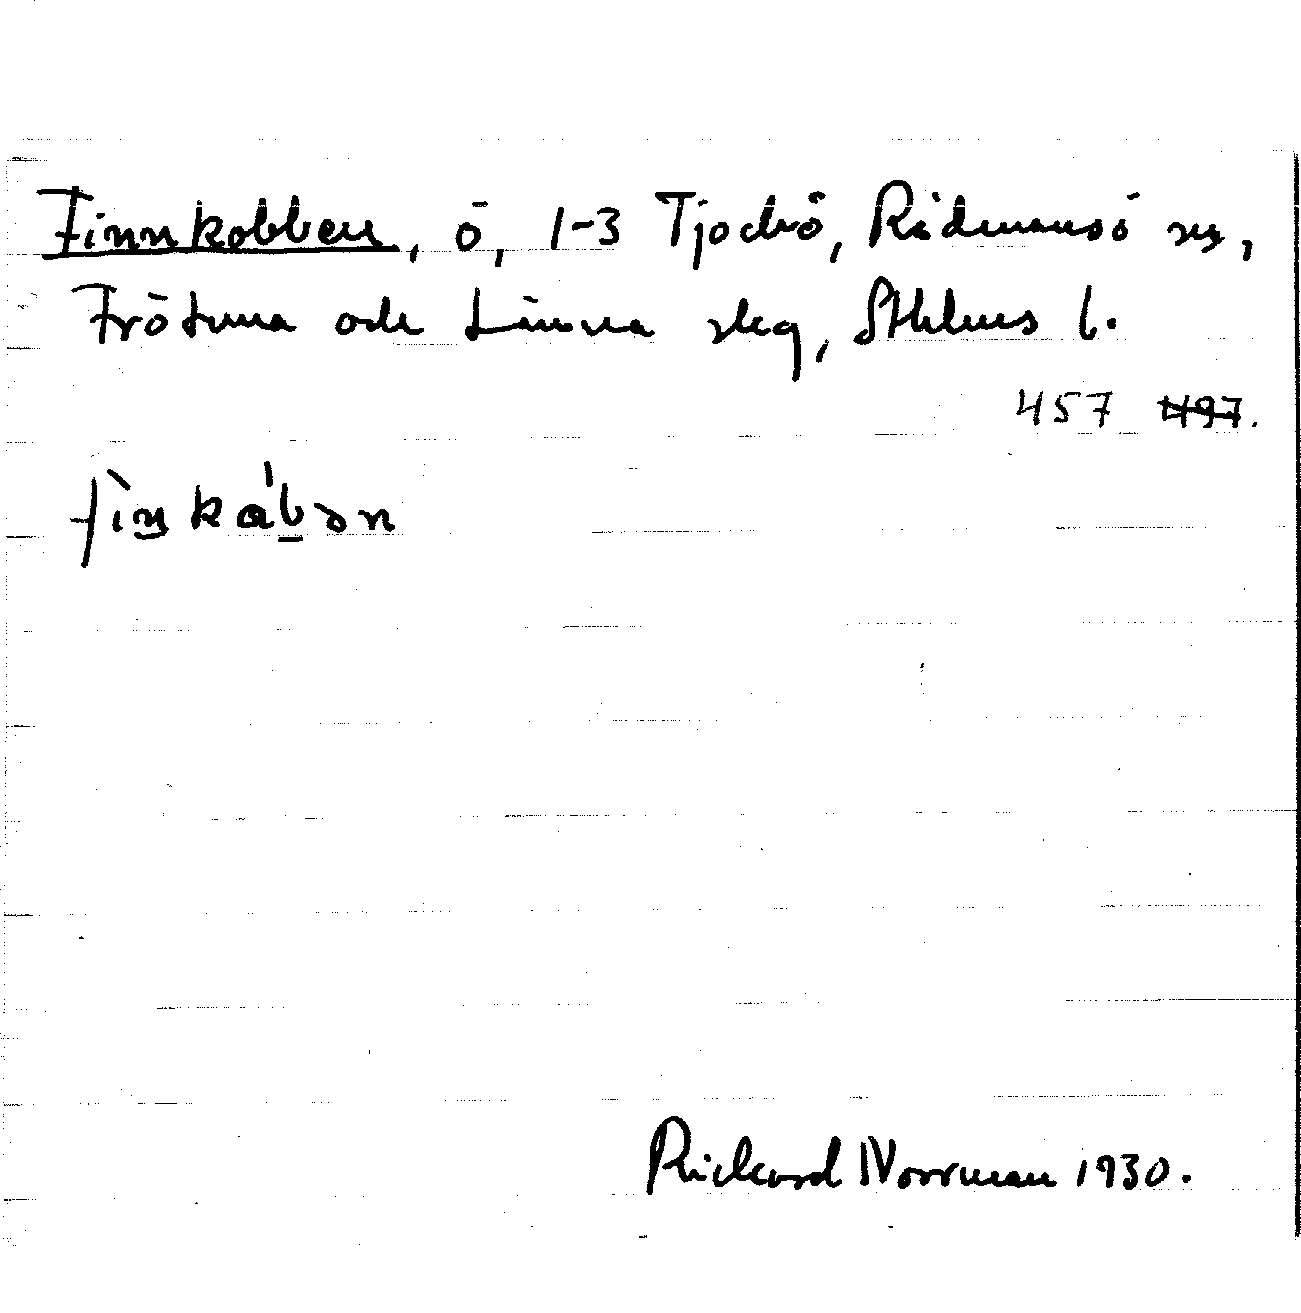 Finnkobben, ö, 1-3 Tjockö, Rådmansö sn,
Frötuna och Länna skg, Sthlms l.
457 497.
Rickard Norrman 1930.